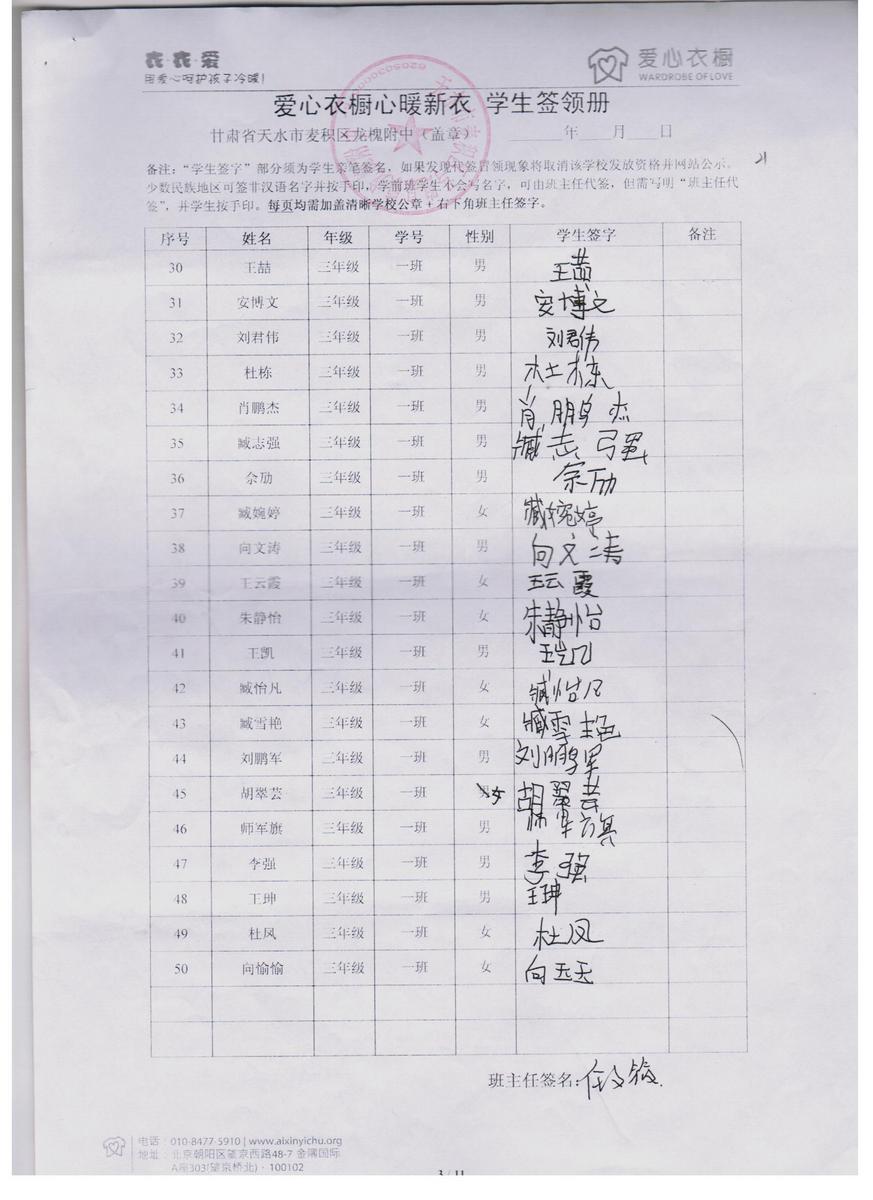 衣·衣·爱
用爱心呵护孩子冷暖!
爱心衣橱
WARDROBE OF LOVE
爱心衣橱心暖新衣 学生签领册
甘肃省天水市麦积区龙槐附中（盖章） ______年____月____日
备注：“学生签字”部分须为学生亲笔签名，如果发现代签冒领现象将取消该学校发放资格并网站公示。
少数民族地区可签非汉语名字并按手印，学前班学生不会写名字，可由班主任代签，但需写明“班主任代
签”，并学生按手印。每页均需加盖清晰学校公章+右下角班主任签字。
序号 姓名 年级 学号 性别 学生签字 备注
30 王喆 三年级 一班 男
31 安博文 三年级 一班 男 安博文
32 刘君伟 三年级 一班 男 刘君伟
33 杜栋 三年级 一班 男 杜栋
34 肖鹏杰 三年级 一班 男 肖鹏杰
35 臧志强 三年级 一班 男 臧志强
36 佘励 三年级 一班 男
37 臧婉婷 三年级 一班 女 臧婉婷
38 向文涛 三年级 一班 男 向文涛
39 王云霞 三年级 一班 女 王云霞
40 朱静怡 三年级 一班 女 朱静怡
41 王凯 三年级 一班 男 王凯
42 臧怡凡 三年级 一班 女 臧怡凡
43 臧雪艳 三年级 一班 女 臧雪艳
44 刘鹏军 三年级 一班 男 刘鹏军
45 胡翠芸 三年级 一班 男女 胡翠芸
46 师军旗 三年级 一班 男 师军旗
47 李强 三年级 一班 男 李强
48 王珅 三年级 一班 男 王珅
49 杜凤 三年级 一班 女 杜凤
50 向愉愉 三年级 一班 女 向玉玉
班主任签名:
电话：010-8477-5910 | www.aixinyichu.org
地址：北京朝阳区望京西路48-7 金隅国际
A座303(望京桥北)·100102
3 / 11